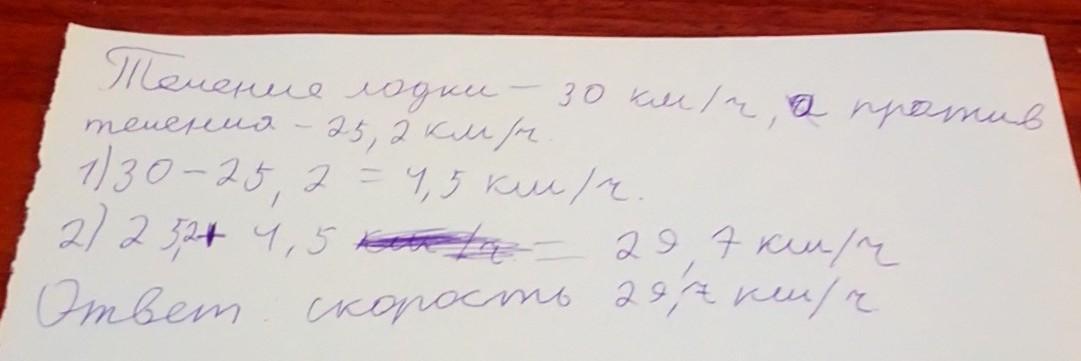 Течение лодки – 30 км/ч, а против
течения – 25,2 км/ч.
1) 30 – 25,2 = 4,5 км/ч.
2) 25,2 + 4,5 = 29,7 км/ч
Ответ: скорость 29,7 км/ч